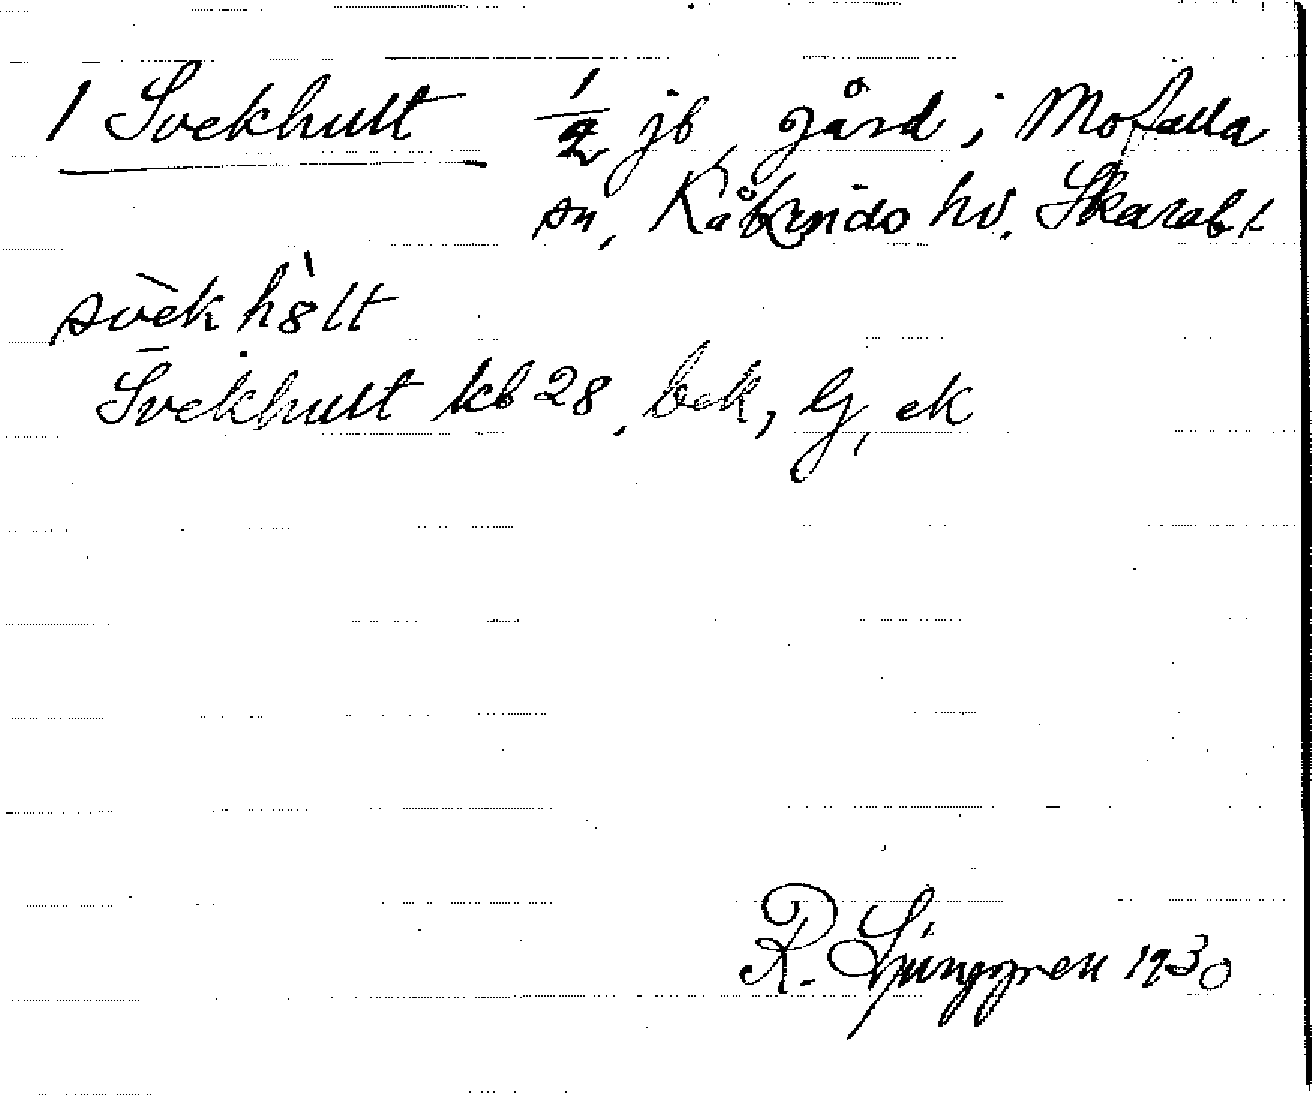 1 Svekhult 1/2 jb, gård i Mofalla
sn, Kåkinds hd. Skarab. l
svèk hàlt
Svekhult kb 28, bek, Gj, ek
R. Ljunggren 1930